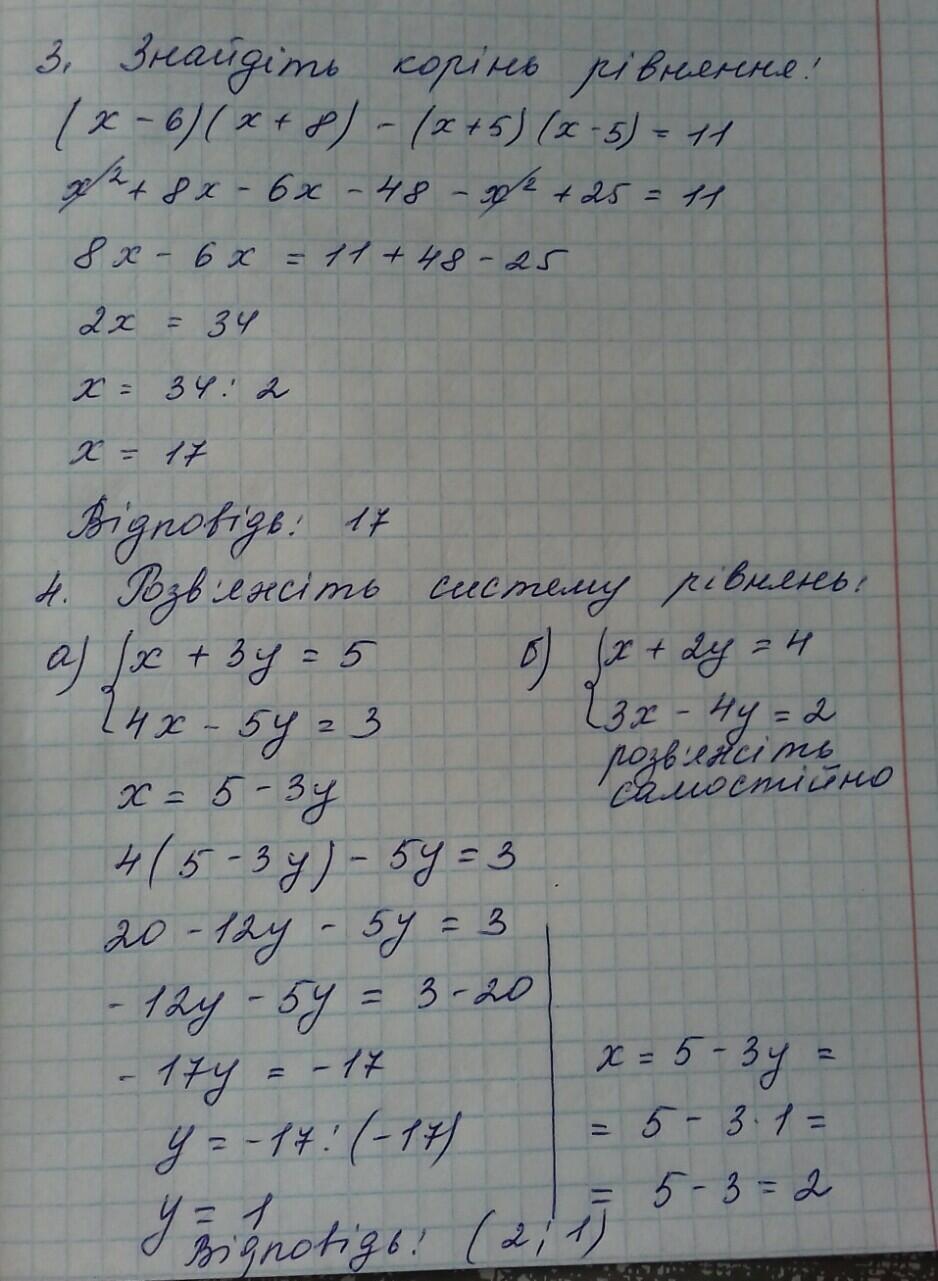 3. Знайдіть корінь рівняння:
(x - 6)(x + 8) - (x + 5)(x - 5) = 11
x² + 8x - 6x - 48 - x² + 25 = 11
8x - 6x = 11 + 48 - 25
2x = 34
x = 34 : 2
x = 17
Відповідь: 17
4. Розв'яжіть систему рівнянь:
а) { x + 3y = 5
4x - 5y = 3
x = 5 - 3y
4(5 - 3y) - 5y = 3
20 - 12y - 5y = 3
- 12y - 5y = 3 - 20
- 17y = - 17
y = -17 : (-17)
y = 1
б) { x + 2y = 4
3x - 4y = 2
розв'яжіть
самостійно
x = 5 - 3y =
= 5 - 3 · 1 =
= 5 - 3 = 2
Відповідь: (2; 1)